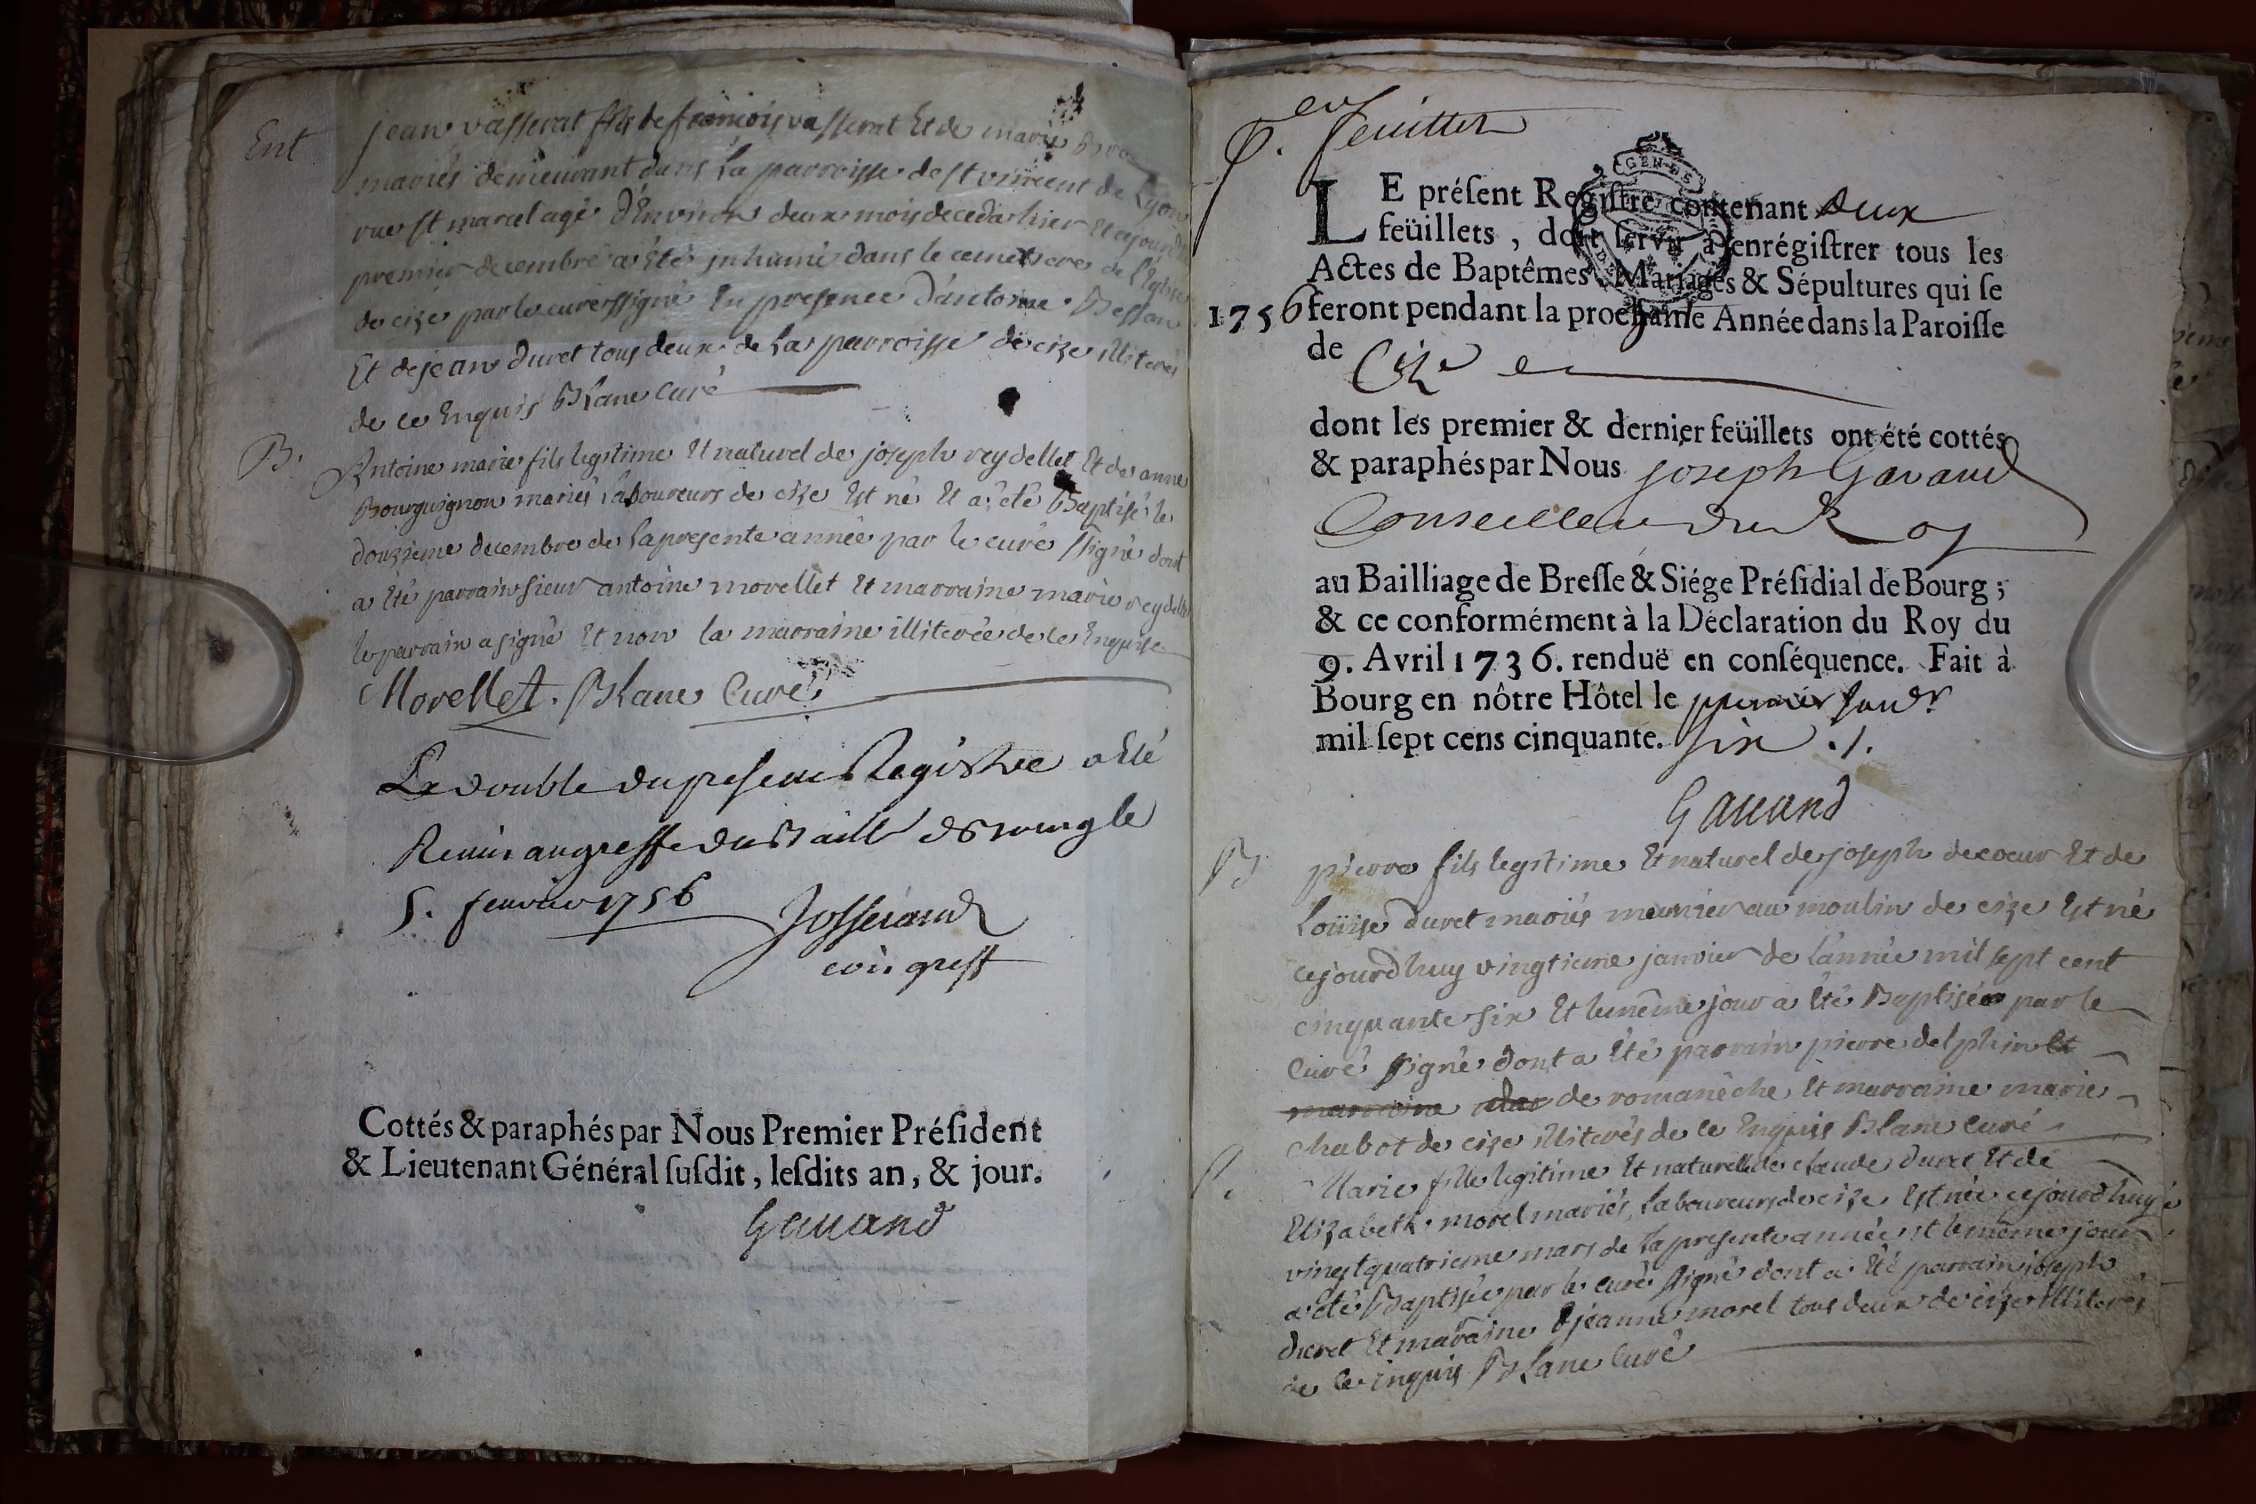 Ent
jean vasserat fils de francois vasserat Et de marie
mariés demeurant dans la parroisse de st vincent de Lyon
rue st marcel agé d'Environ deux mois deceda hier et cejourdh
premier decembre a été inhumé dans le cemetiere de l'Eglise
de cize par le curé ssigné En presence d'antoine Besson
Et de jean Duret tous deux de la parroisse de cize illiterés
de ce Enquis Blanc Curé
B.
Antoine marie fils legitime Et naturel de joseph reydellet Et de anne
Bourguignon mariés laboureurs de cize Est né Et a été Baptisé le
douzieme decembre de la presente année par le curé ssigné dont
a été parrain sieur antoine morellet Et marraine marie reydellet
le parrain a signé Et non la marraine illiterée de ce Enquise
Morellet. Blanc Curé
Le double du present Registre a Eté
Remis au greffe du Baill de Bourg le
5. janvier 1756
Josserand
comis greff
Cottés & paraphés par Nous Premier Préſident
& Lieutenant Général ſuſdit, leſdits an, & jour.
Gauand
P.er feuillet
GEN·DE
LE préſent Regiſtre contenant deux
feüillets, doit ſervir à enrégiſtrer tous les
Actes de Baptêmes, Mariages & Sépultures qui ſe
1756 feront pendant la prochaine Année dans la Paroiſſe
de Cize
dont les premier & dernier feüillets ont été cottés
& paraphés par Nous joseph Gavand
Conseiller du Roy
au Bailliage de Breſſe & Siége Préſidial de Bourg ;
& ce conformément à la Déclaration du Roy du
9. Avril 1736. renduë en conſéquence. Fait à
Bourg en nôtre Hôtel le premier janvr
mil ſept cens cinquante. six ./.
Gauand
B
pierre fils legitime Et naturel de joseph decoeur Et de
Loüise duret mariés meunier au moulin de cize Est né
cejourdhuy vingtieme janvier de l'année mil sept cent
cinquante six Et le même jour a été Baptisé par le
Curé ssigné dont a été parrain pierre delphin Et
marraine de romanêche Et marraine marie
chabot de cize illiterés de ce Enquis Blanc Curé
Marie fille legitime Et naturelle de claude duret Et de
Elizabeth morel mariés Laboureurs de cize Est née cejourdhuy
vingt quatrieme mars de la presente année et le même jour
a été Baptisée par le curé ssigné dont a été parrain joseph
ducret Et maraine jeanne morel tous deux de cize illiterés
de ce Enquis Blanc Curé